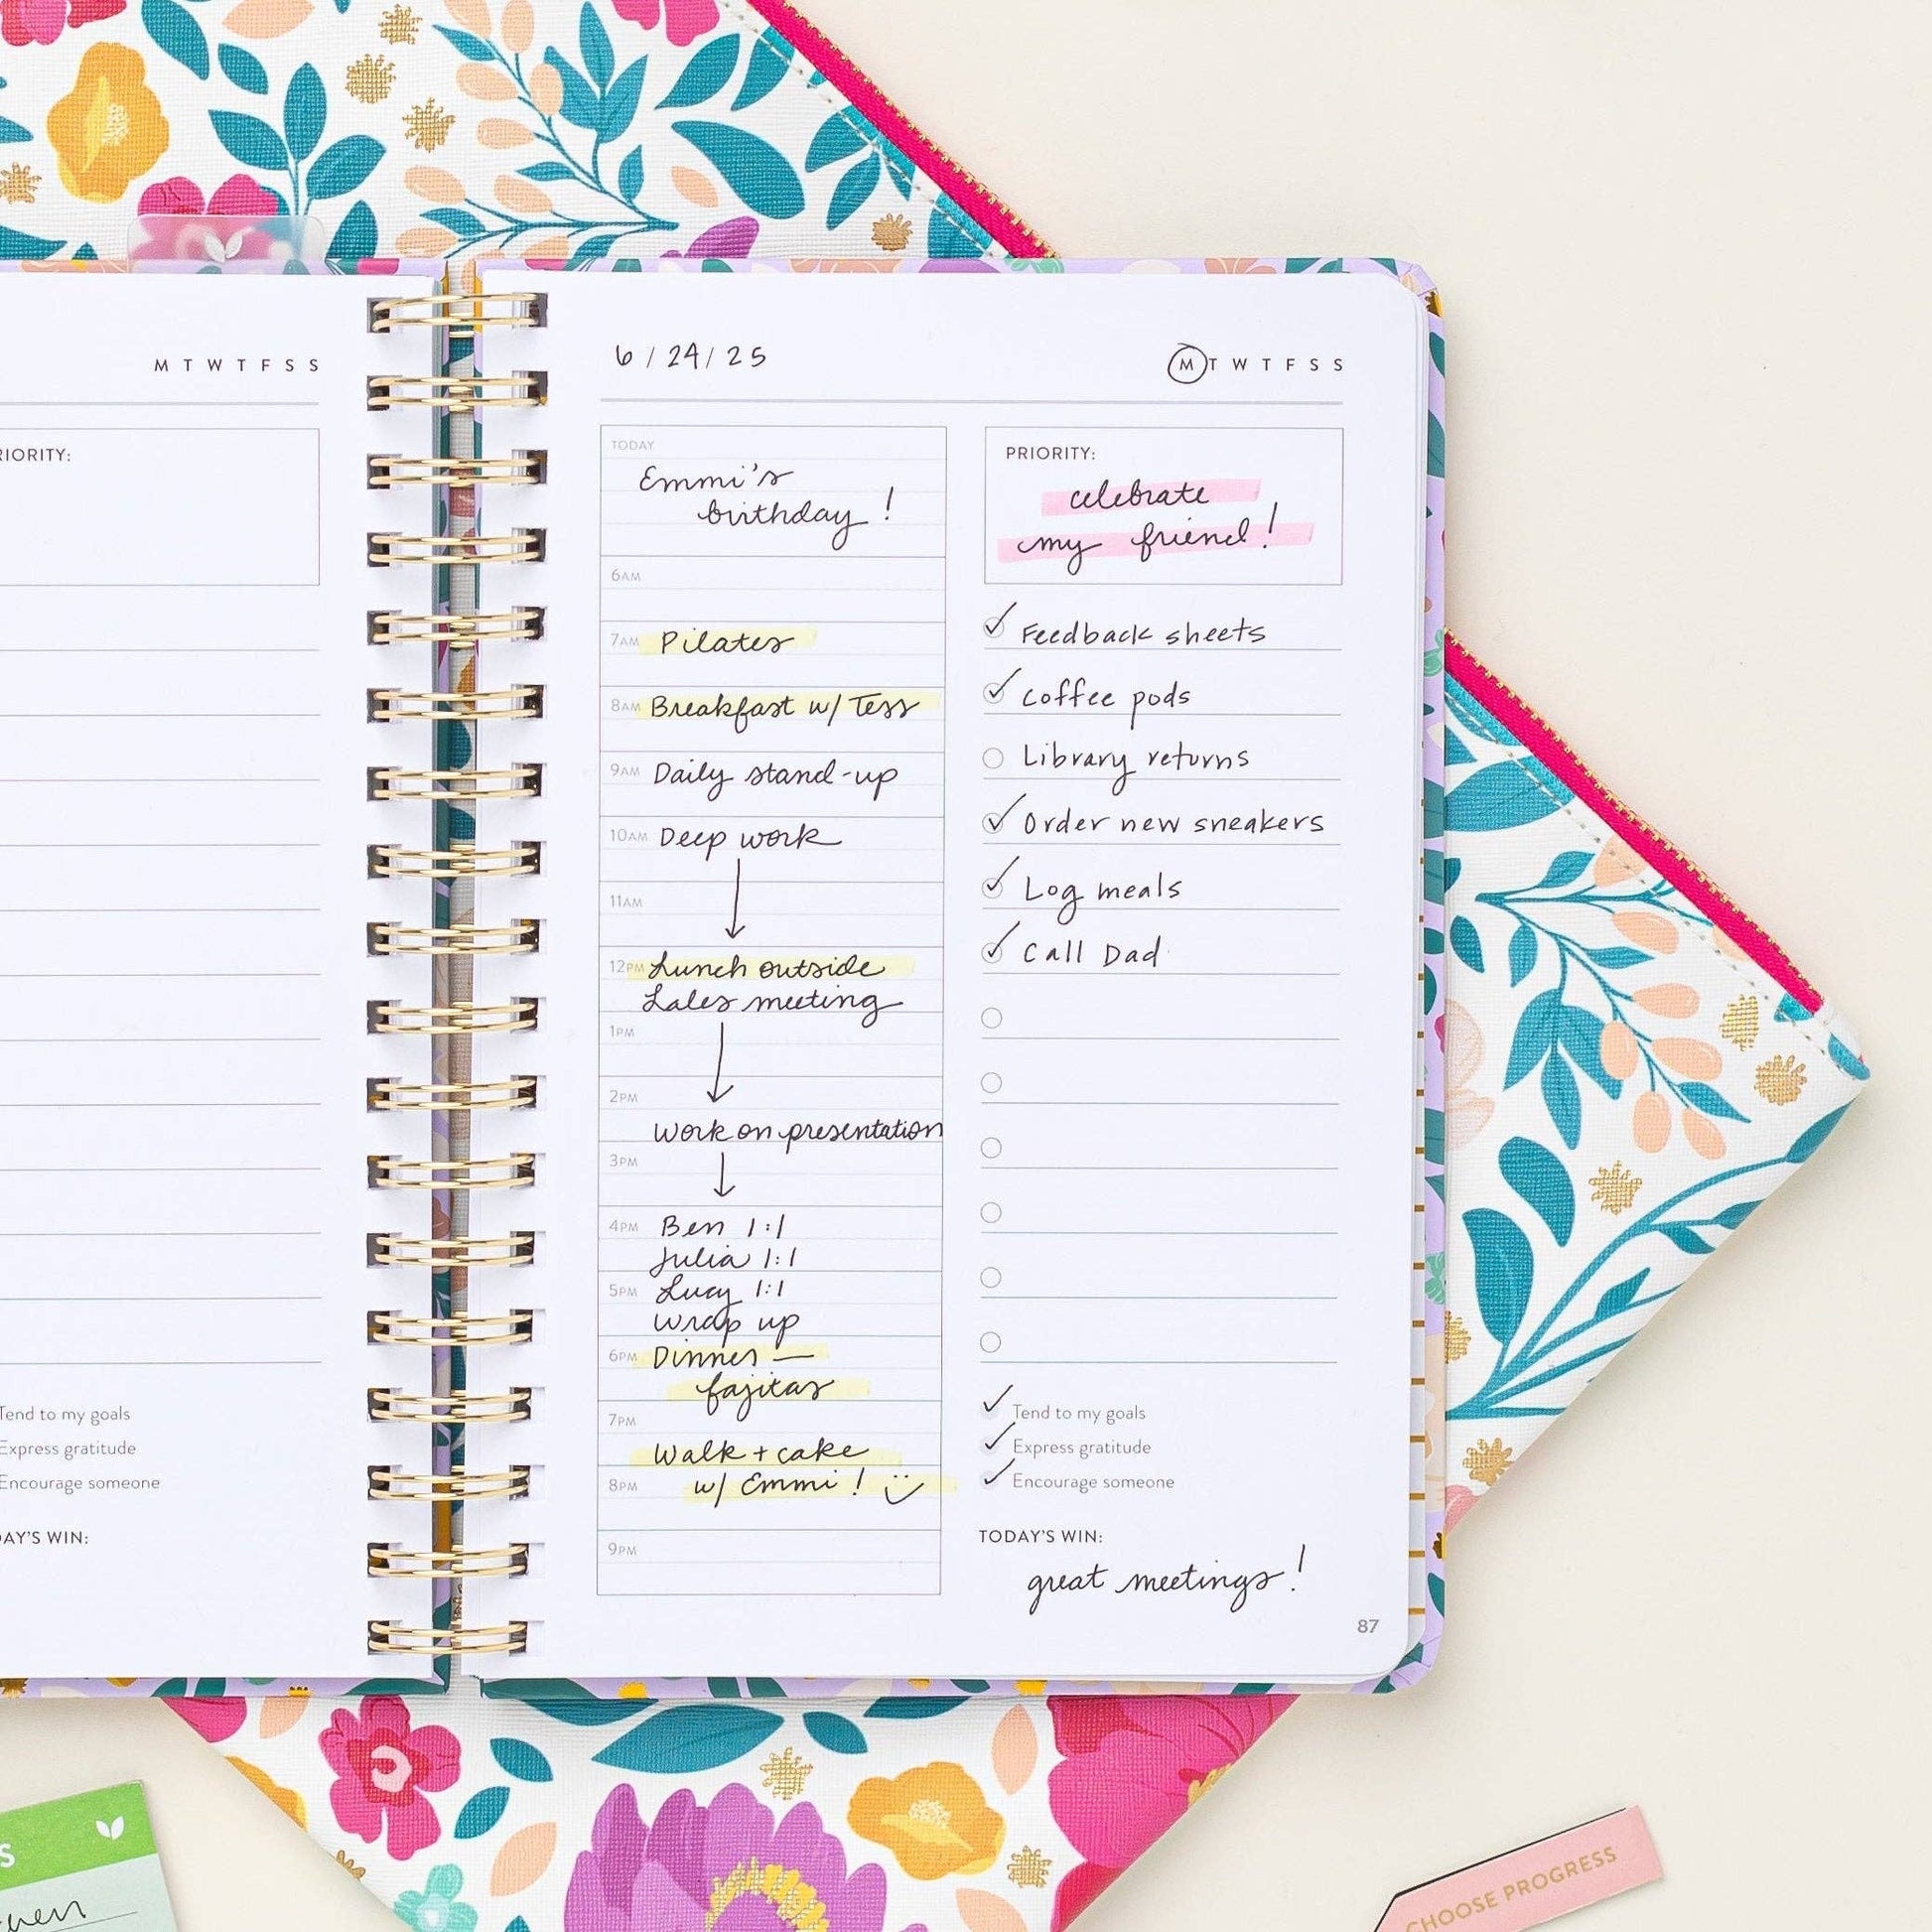 M T W T F S S
RIORITY:
Tend to my goals
Express gratitude
Encourage someone
AY'S WIN:
6 / 24 / 25
M T W T F S S
TODAY
Emmi's
birthday !
6AM
7AM Pilates
8AM Breakfast w/ Tess
9AM Daily stand-up
10AM Deep work
11AM
12PM Lunch outside
Sales meeting
1PM
2PM
Work on presentation
3PM
4PM Ben 1:1
Julia 1:1
5PM Lucy 1:1
wrap up
6PM Dinner —
fajitas
7PM
Walk + cake
8PM w/ Emmi ! :)
9PM
PRIORITY:
celebrate
my friend!
Feedback sheets
Coffee pods
Library returns
Order new sneakers
Log meals
Call Dad
Tend to my goals
Express gratitude
Encourage someone
TODAY'S WIN:
great meetings!
87
S
CHOOSE PROGRESS